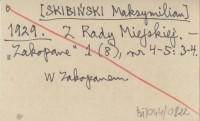 [SKIBIŃSKI Maksymilian]
1929. Z Rady Miejskiej. —
„Zakopane" 1 (8), nr 4-5: 3-4.
W Zakopanem